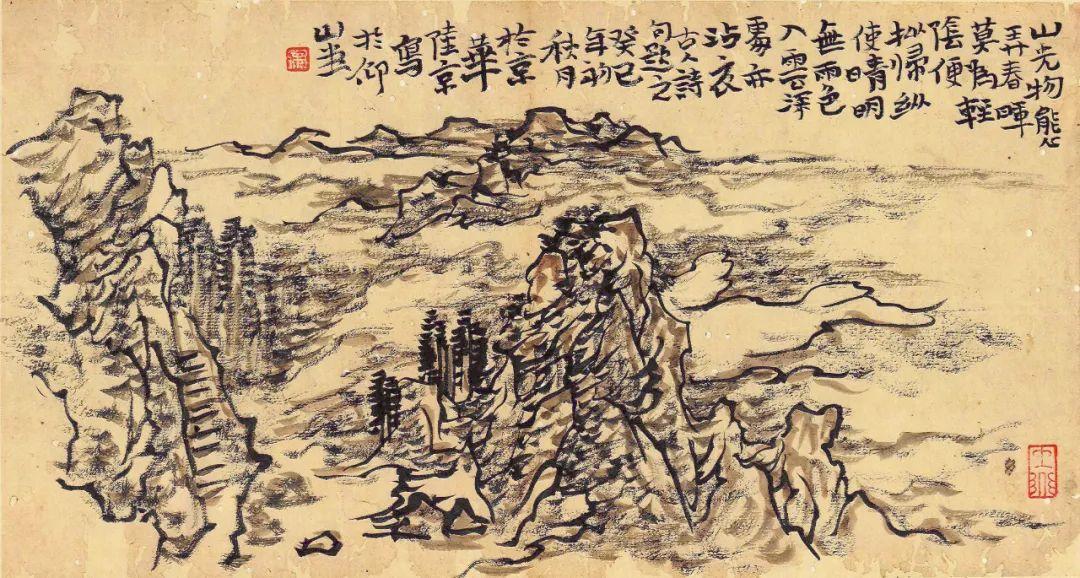 山光物態
弄春暉
莫為輕
陰便
拟歸縱
使晴明
無雨色
入雲深
處亦
沾衣
古人詩
句題之
癸巳
年初
秋月
於京
華
陸京
寫
於仰
山堂